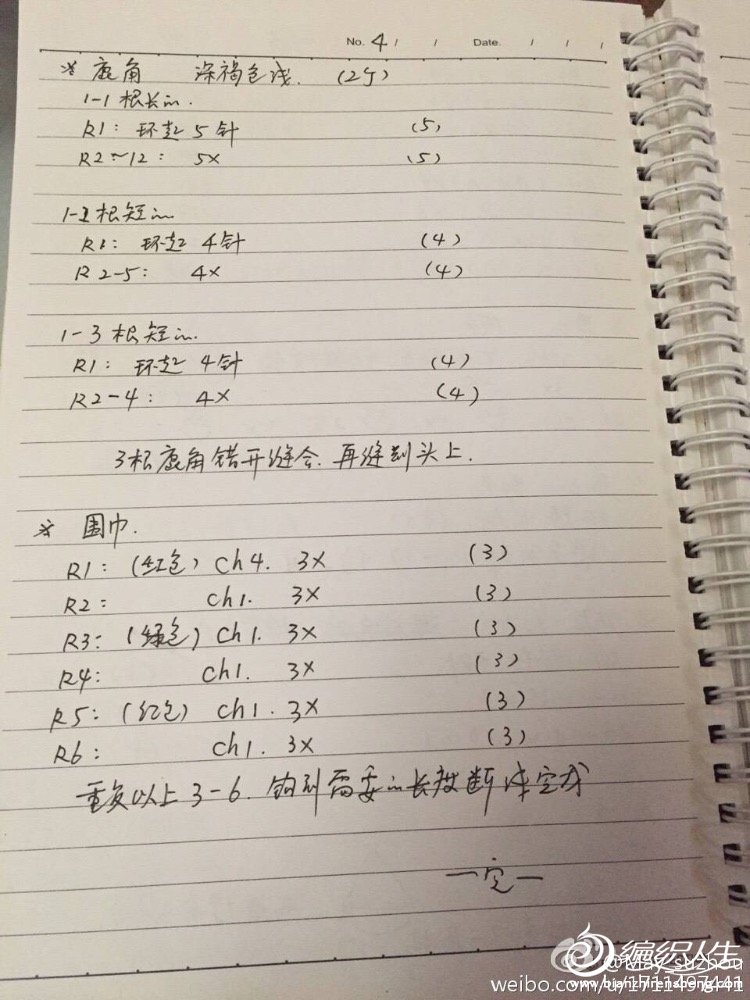 No. 4 / / Date. / / /
※ 鹿角 深褐色线. (2个)
1-1 根长的.
R1: 环起 5 针 (5)
R2~12: 5X (5)
1-2 根短的
R1: 环起 4针 (4)
R2-5: 4X (4)
1-3 根短的.
R1: 环起 4针 (4)
R2-4: 4X (4)
3根鹿角错开缝合. 再缝到头上.
※ 围巾.
R1: (红色) ch4. 3X (3)
R2: ch1. 3X (3)
R3: (绿色) ch1. 3X (3)
R4: ch1. 3X (3)
R5: (红色) ch1. 3X (3)
R6: ch1. 3X (3)
重复以上 3-6. 钩到需要的长度断线完成
—完—
编织人生
@May_suzhou
weibo.com/u/1711497441